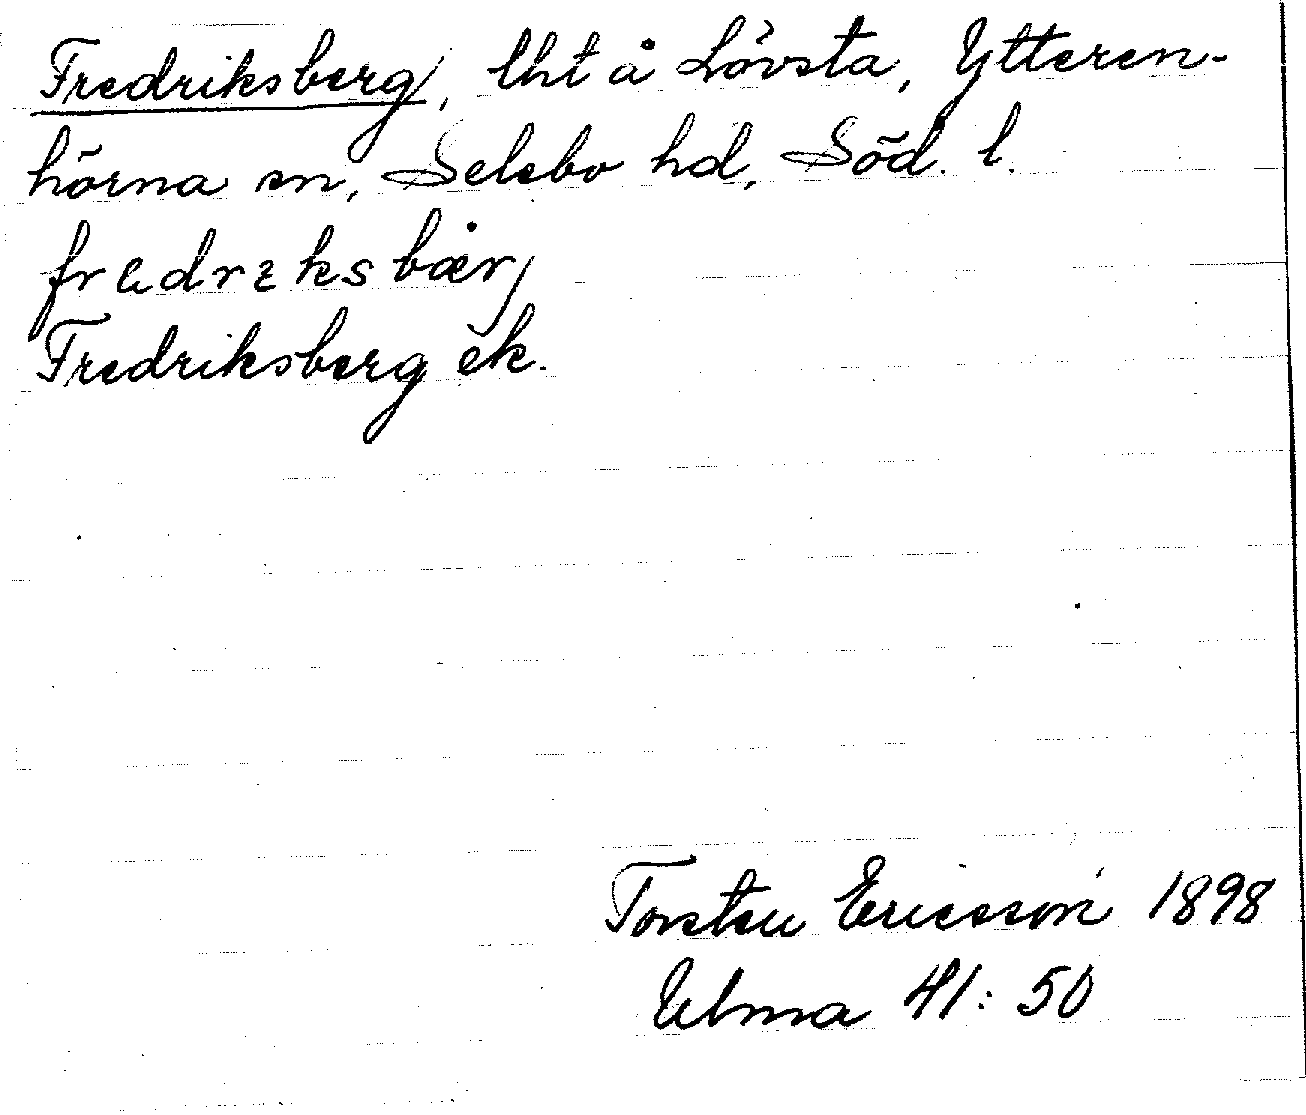 Fredriksberg, lht å Lövsta, Ytteren-
hörna sn, Selebo hd, Söd. l.
fredreksbær,
Fredriksberg ek.
Torsten Ericsson 1898
Ulma 41:50